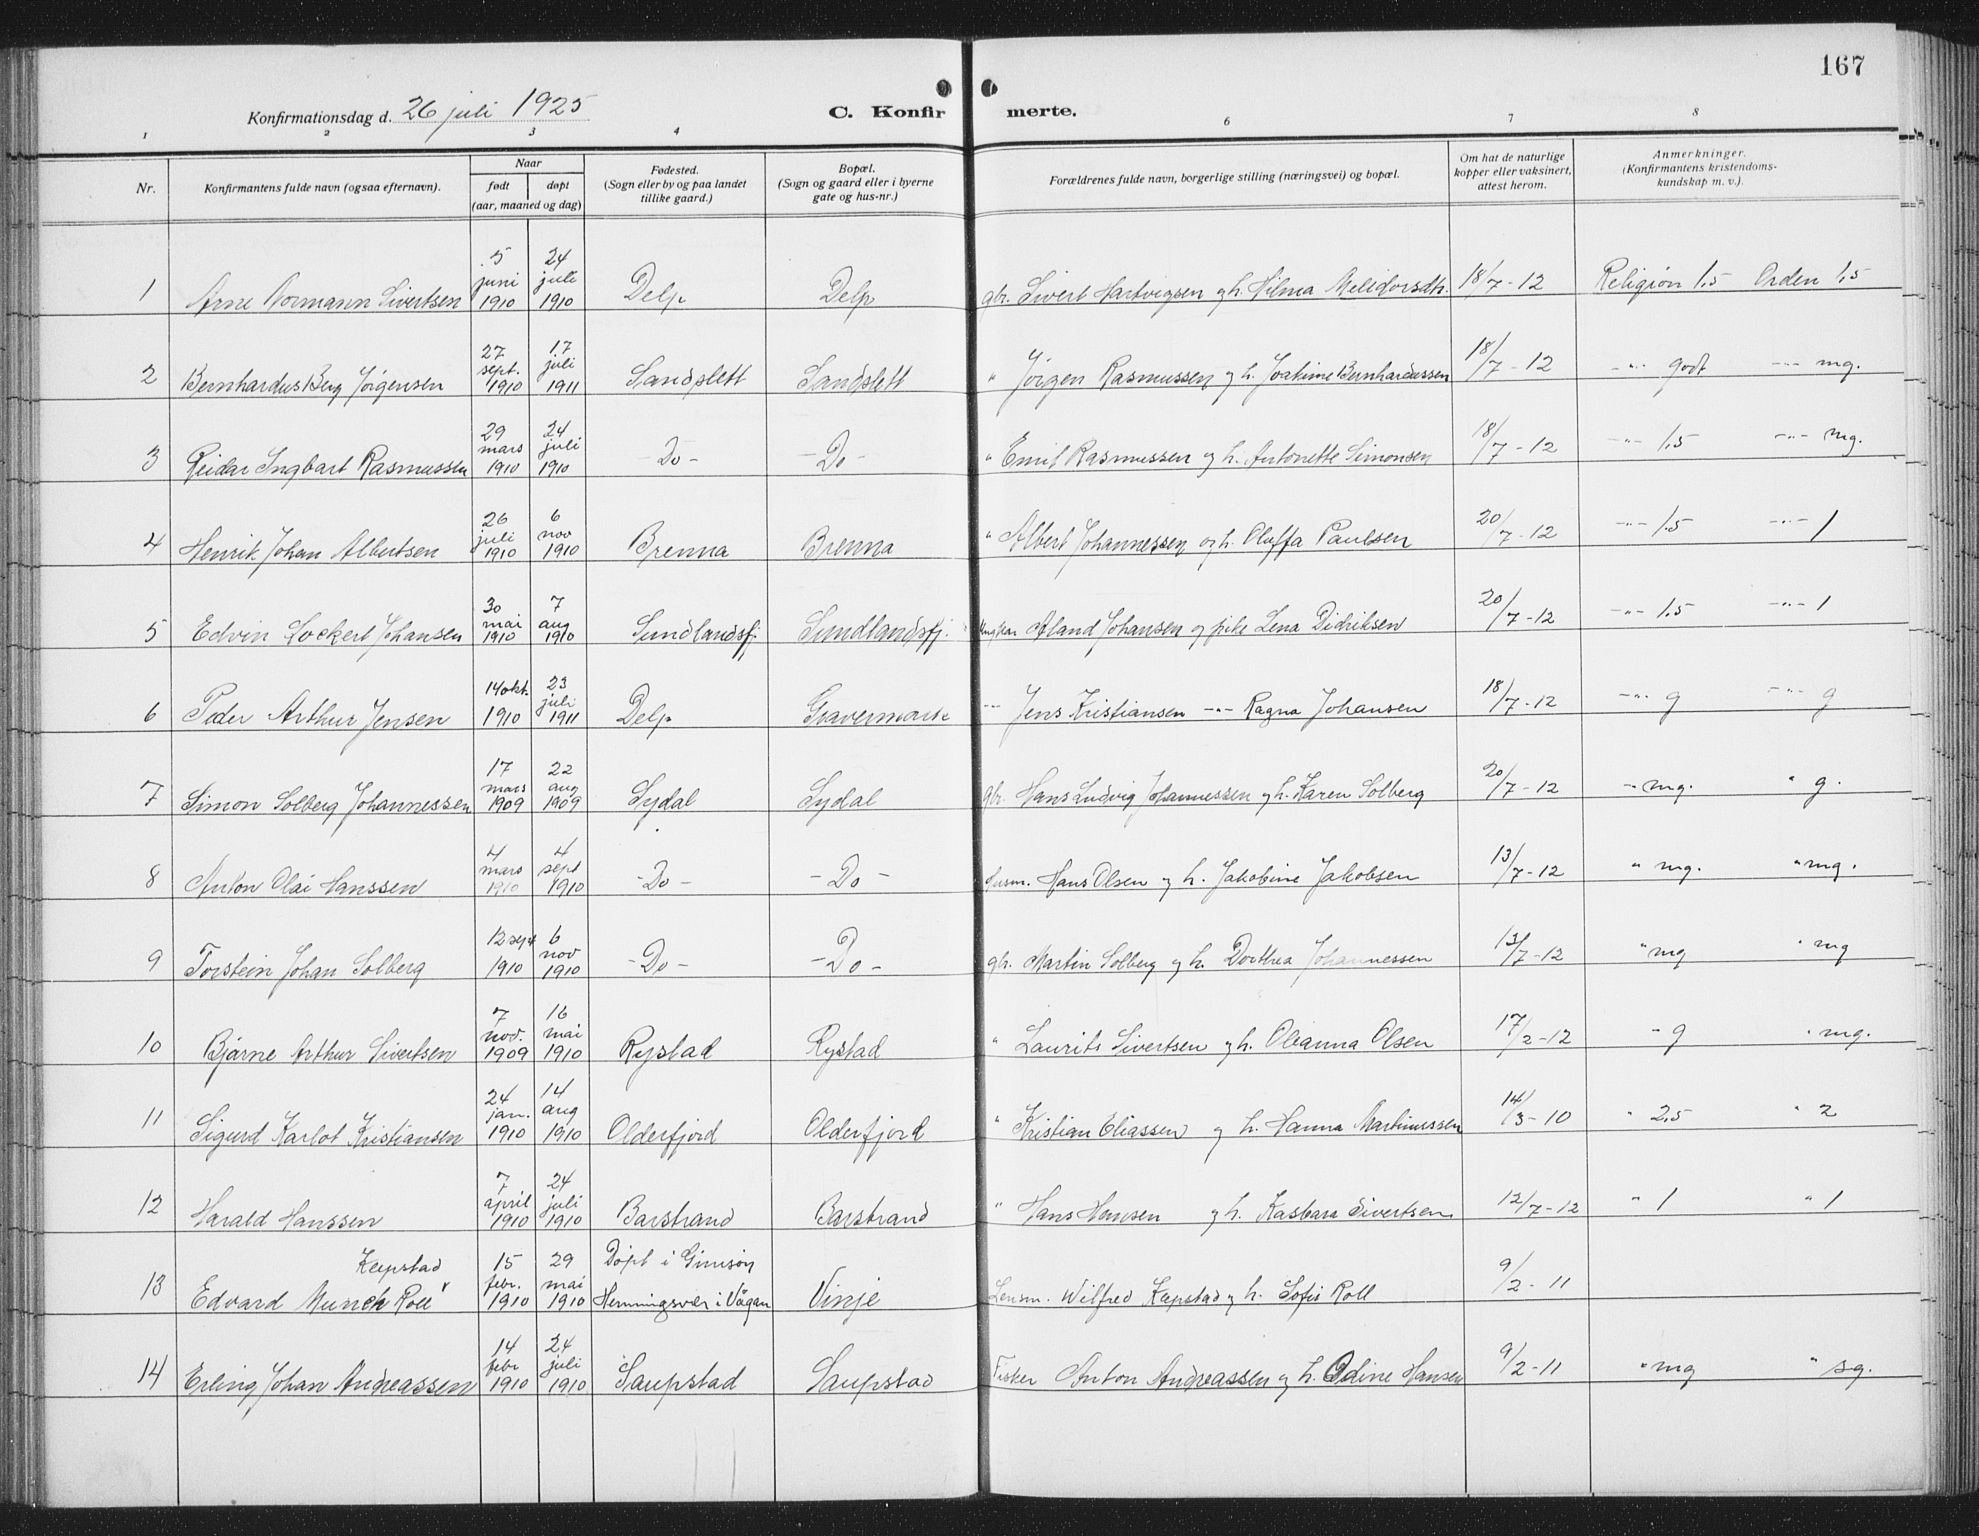 167
Konfirmationsdag d. 26 juli 1925 C. Konfirmerte.
1 2 3 4 6 7 8
Nr. Konfirmantens fulde navn (ogsaa efternavn). Naar født døpt (aar, maaned og dag) Fødested. (Sogn eller by og paa landet tillike gaard.) Bopæl. (Sogn og gaard eller i byerne gate og hus-nr.) Forældrenes fulde navn, borgerlige stilling (næringsvei) og bopæl. Om hat de naturlige kopper eller vaksinert, attest herom. Anmerkninger. (Konfirmantens kristendoms-kundskap m. v.).
1 Arne Normann Sivertsen 5 juni 1910 24 juli 1910 Delp Delp gbr. Sivert Hartvigsen og h. Hilma Melidorsdtr. 18/7-12 Religion 1,5 Orden 1,5
2 Bernhardus Berg Jørgensen 27 sept. 1910 17 juli 1911 Sandslett Sandslett " Jörgen Rasmussen og h. Joakime Bernhardussen 18/7-12 -"- godt -"- mg.
3 Reidar Ingbart Rasmussen 29 mars 1910 24 juli 1910 -Do- -Do- " Emil Rasmussen og h. Antonette Simonsen 18/7-12 -"- 1,5 -"- mg.
4 Henrik Johan Albertsen 26 juli 1910 6 nov 1910 Brenna Brenna " Albert Johannessen og h. Oluffa Paulsen 20/7-12 -"- 1,5 -"- 1
5 Edvin Lockert Johansen 30 mai 1910 7 aug 1910 Sundlandsfj. Sundlandsfj. Ungkar Aland Johansen og pike Lena Didriksen 20/7-12 -"- 1,5 -"- 1
6 Peder Arthur Jensen 14 okt. 1910 23 juli 1911 Delp Gravermark -"- Jens Kristiansen -"- Ragna Johansen 18/7-12 -"- g -"- g
7 Simon Solberg Johannessen 17 mars 1909 22 aug 1909 Sydal Sydal gbr. Hans Ludvig Johannessen og h. Karen Solberg 20/7-12 " mg. " g.
8 Anton Olai Hanssen 4 mars 1910 4 sept 1910 -Do- -Do- Husm. Hans Olsen og h. Jakobine Jakobsen 13/7-12 " mg. " mg.
9 Torstein Johan Solberg 12 sept 1910 6 nov 1910 -Do- -Do- gbr. Martin Solberg og h. Dorthea Johannessen 13/7-12 " mg " mg
10 Bjarne Arthur Sivertsen 7 nov. 1909 16 mai 1910 Rystad Rystad " Laurits Sivertsen og h. Oleanna Olsen 17/2-12 " g " mg.
11 Sigurd Karlot Kristiansen 24 jan. 1910 14 aug 1910 Olderfjord Olderfjord " Kristian Eliassen og h. Hanna Martinussen 14/3-10 " 2,5 " 2
12 Harald Hanssen 7 april 1910 24 juli 1910 Barstrand Barstrand " Hans Hansen og h. Kasbara Sivertsen 12/7-12 " 1 " 1
13 Edvard Munch Roll Kæpstad 15 febr. 1910 29 mai 1910 Døpt i Gimsøy Henningsvær i Vågan Vinje Lensm. Wilfred Kæpstad og h. Sofie Roll 9/2-11
14 Erling Johan Andreassen 14 febr 1910 24 juli 1910 Saupstad Saupstad Fisker Anton Andreassen og h. Odine Hansen 9/2-11 " mg " sg.